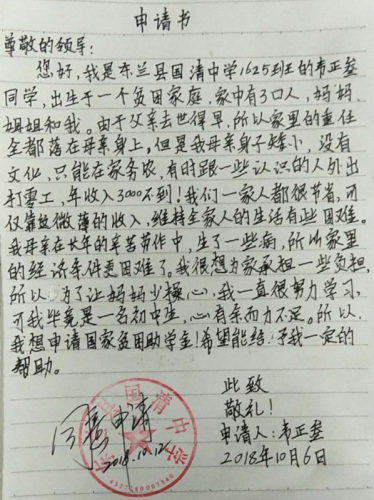 申请书
尊敬的领导:
您好,我是东兰县国清中学1625班的韦正叁
同学,出生于一个贫困家庭,家中有3口人,妈妈、
姐姐和我。由于父亲去世得早,所以家里的重任
全都落在母亲身上,但是我母亲身子矮小,没有
文化,只能在家务农,有时跟一些认识的人外出
打零工,年收入3000不到!我们一家人都很节省,可
仅靠这微薄的收入,维持全家人的生活有些困难。
我母亲在长年的辛苦劳作中,生了一些病,所以家里
的经济条件更困难了。我很想为家承担一些负担,
所以,为了让妈妈少操心,我一直很努力学习,
可我毕竟是一名初中生,心有余而力不足。所以,
我想申请国家贫困助学金!希望能给予我一定的
帮助。
此致
敬礼!
申请人:韦正叁
2018年10月6日
同意申请
2018.10.12
国清中学